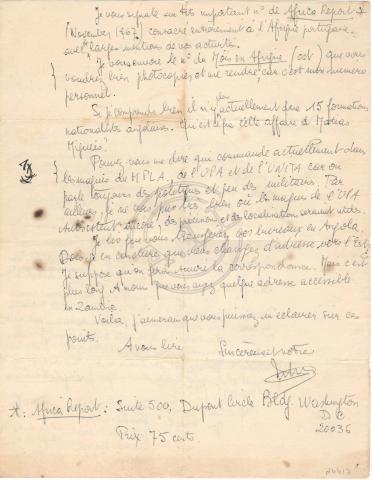 Je vous signale un très important n° de Africa Report *
(November 1967) consacré entièrement à l'Afrique portugaise
avec larges mentions de vos activités.
Je vous envoie le n° du Mois en Afrique (oct) que vous
voudrez bien photocopier et me rendre car c'est mon numéro
personnel.
Si je comprends bien il n'y a actuellement que 15 formations
nationalistes angolaises. Qu'est-ce que cette affaire de Matias
Miguéis?
Pouvez-vous me dire qui commande actuellement dans
les maquis du MPLA, de l'UPA et de l'UNITA car on
parle toujours des politiques et peu des militaires. Par
ailleurs, je ne vois pas très bien où les maquis de l'UPA
subsistent encore, des précisions et des localisations seraient utiles.
Je lis que vous transférez vos bureaux en Angola.
Dois-je en conclure que vous changez d'adresse vers l'Est?
Je suppose qu'on fera suivre la correspondance. Mais c'est
plus long. A moins que vous ayez quelque adresse accessible
en Zambie.
Voilà, j'aimerais que vous puissiez m'éclairer sur ces
points.
A vous lire Sincèrement vôtre
*: Africa Report: Suite 500, Dupont Circle Bldg. Washington
D C
20036
Prix 75 cents